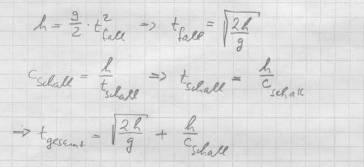 h = g/2 · t_fall² => t_fall = √(2h/g)
c_schall = h/t_schall => t_schall = h/c_schall
=> t_gesamt = √(2h/g) + h/c_schall